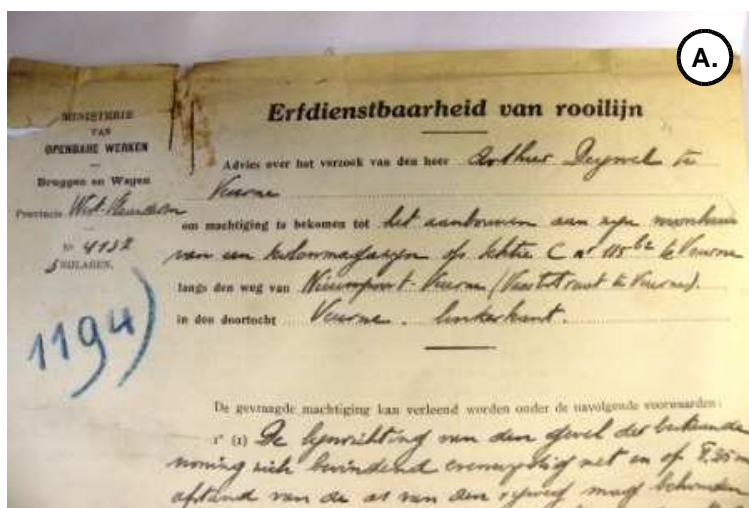 A.
MINISTERIE
VAN
OPENBARE WERKEN
Bruggen en Wegen
Provincie West-Vlaanderen
Nr 4132
5 BIJLAGEN.
1194)
Erfdienstbaarheid van rooilijn
Advies over het verzoek van den heer Arthur te
Veurne
om machtiging te bekomen tot het aanbouwen aan zijn woonhuis
van een kolenmagazijn op sektie C nr 115 te Veurne
langs den weg van Nieuwpoort-Veurne ( te Veurne).
in den doortocht Veurne. linkerkant.
De gevraagde machtiging kan verleend worden onder de navolgende voorwaarden:
1° (1) De lijnrichting van den gevel der bestaande
woning zich bevindend evenwijdig met en op 8,25 m
afstand van de as van den rijweg mag behouden